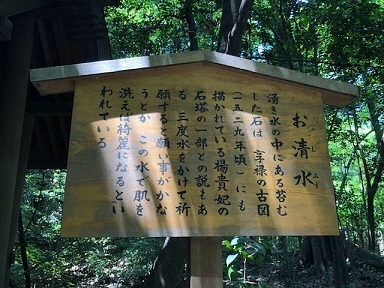 お清水
し みず
湧き水の中にある苔む
した石は、享禄の古図
(一五二九年頃)にも
描かれている楊貴妃の
石塔の一部との説もあ
る 三度水をかけて祈
願すると願い事がかな
うとか この水で肌を
洗えば綺麗になるとい
われている